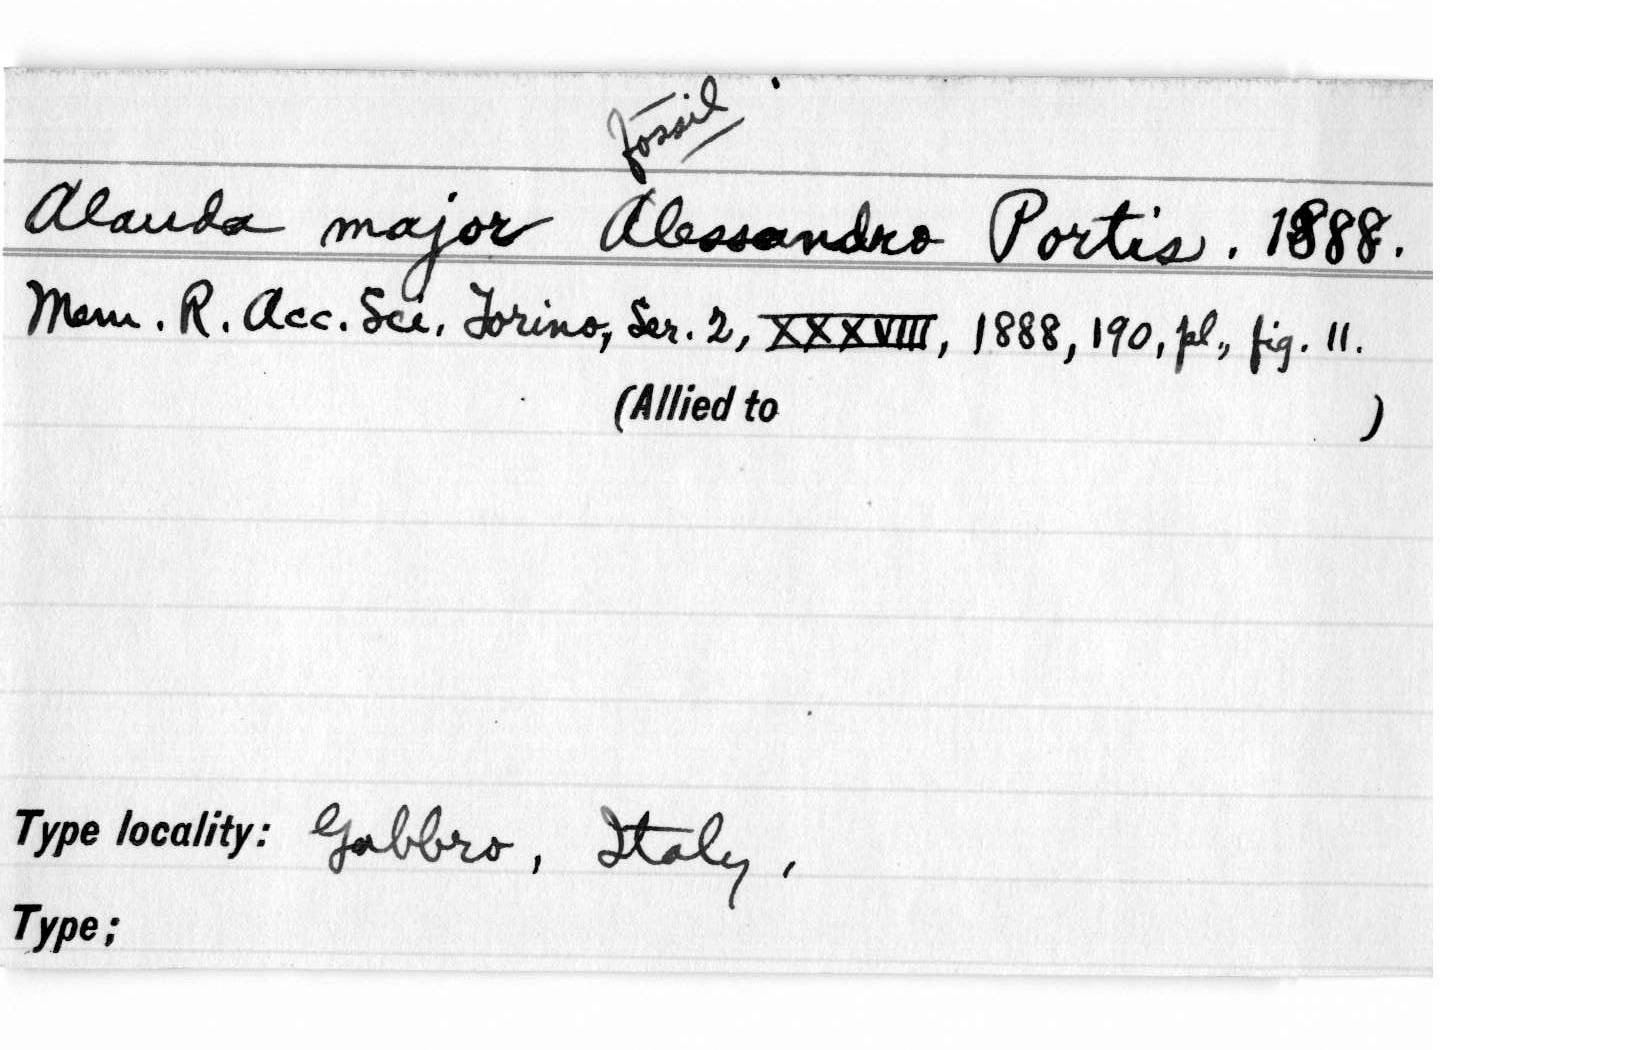 fossil
Alauda major Alessandro Portis. 1888.
Mem. R. Acc. Sci. Torino, Ser. 2, XXXVIII, 1888, 190, pl., fig. 11.
(Allied to )
Type locality: Gabbro, Italy,
Type;